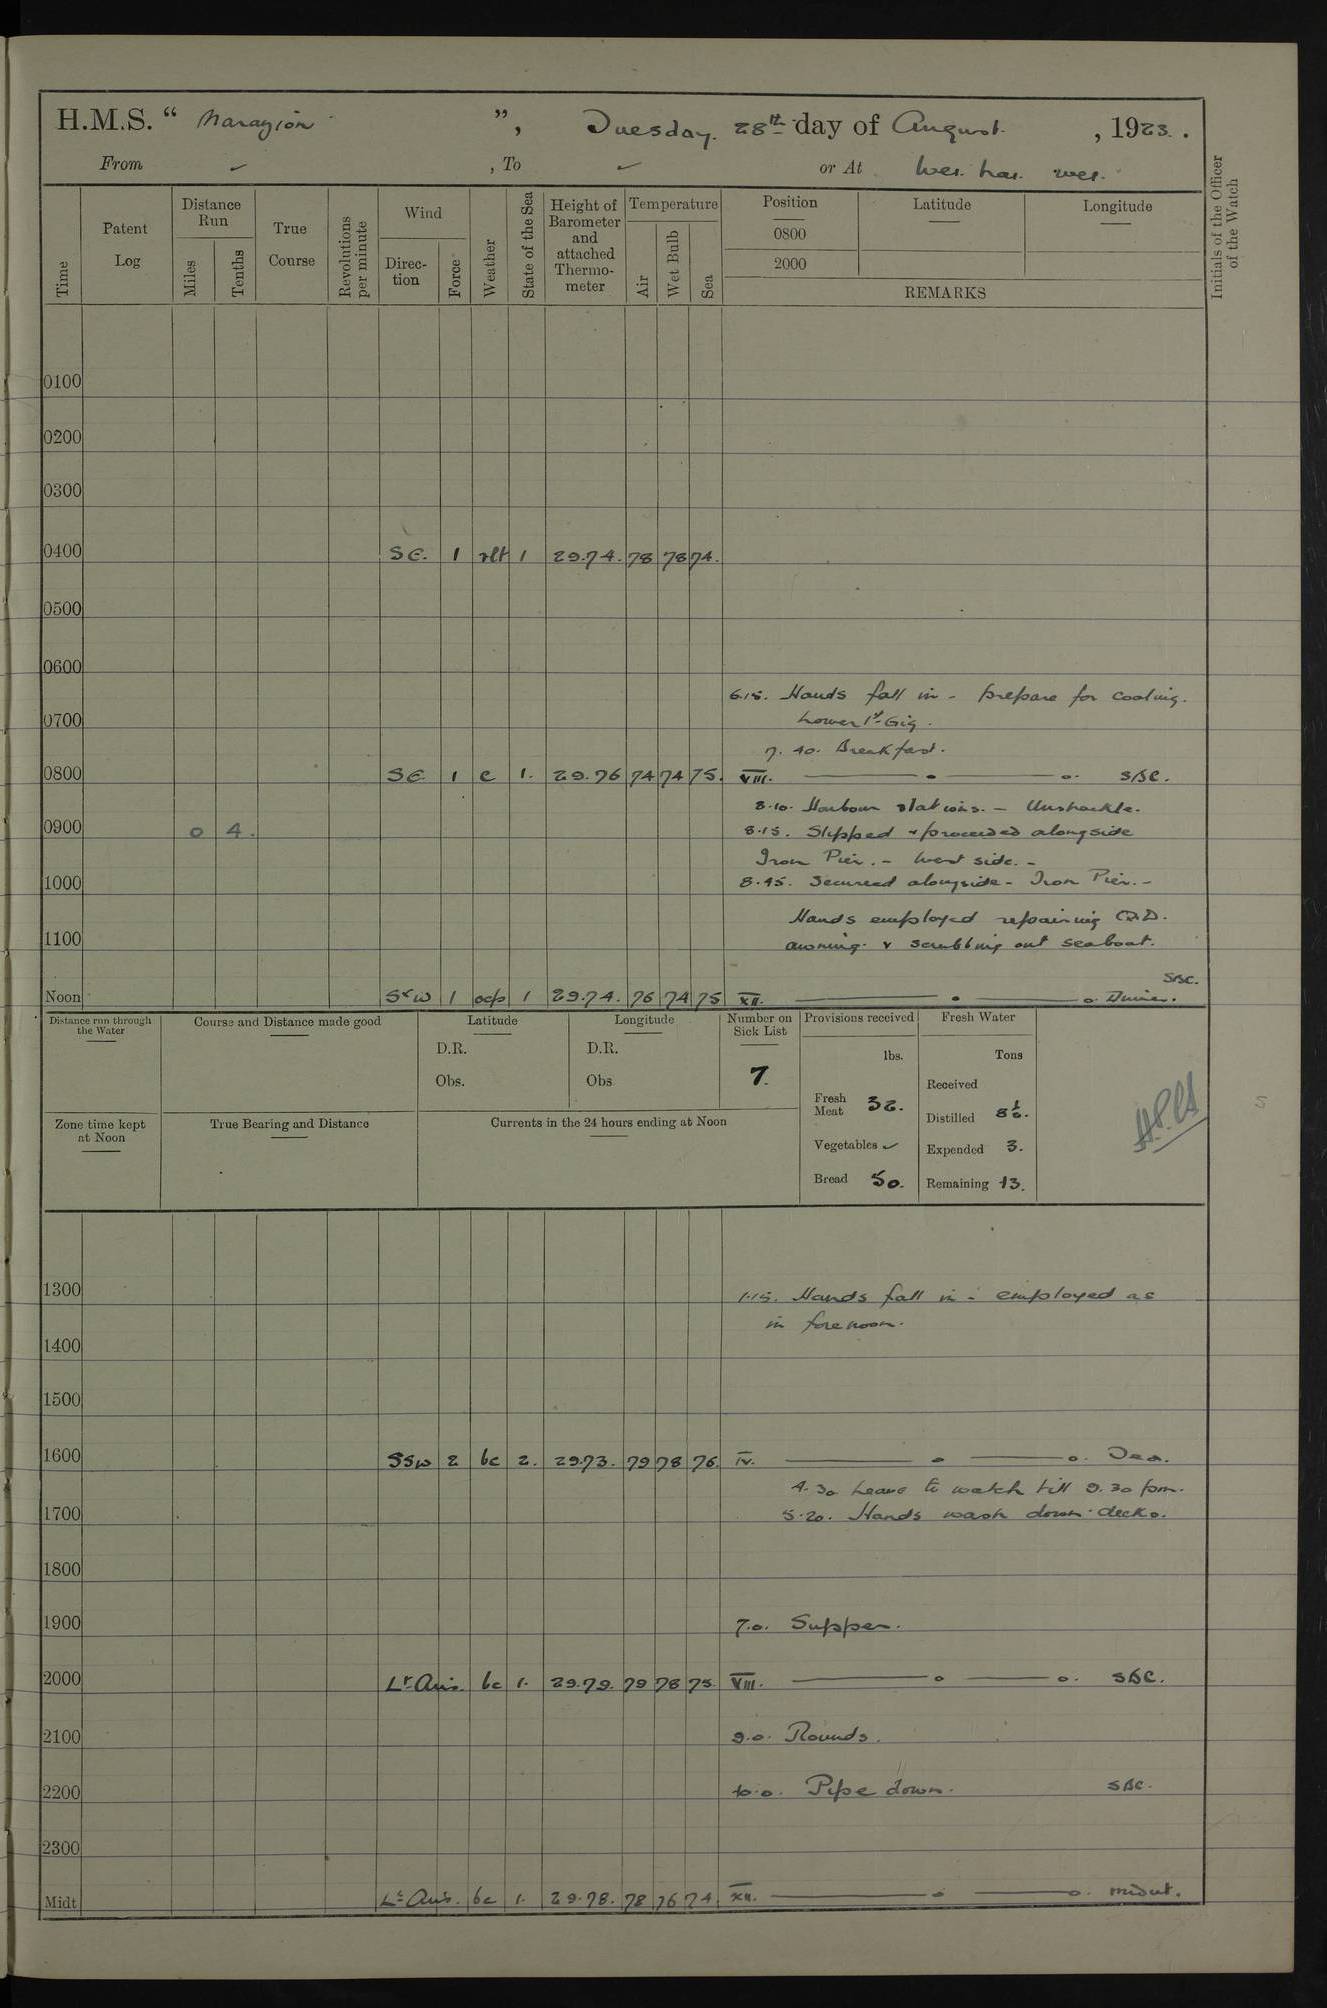 H.M.S. “ Marazion ”, Tuesday. 28th day of August. , 1923.
From ✓ , To ✓ or At Wei. hai. wei.
Time
Patent Log
Distance Run
Miles
Tenths
True Course
Revolutions per minute
Wind
Direction
Force
Weather
State of the Sea
Height of Barometer and attached Thermometer
Temperature
Air
Wet Bulb
Sea
Position
0800
2000
Latitude
Longitude
REMARKS
Initials of the Officer of the Watch
0100
0200
0300
0400 SE. 1 rlt 1 29.74. 78 78 74.
0500
0600
6.15. Hands fall in - prepare for coaling.
0700 Lower 1st Gig.
7. 40. Breakfast.
0800 SE 1 c 1. 29.76 74 74 75. VIII. SBC.
8.10. Harbour stations. - Unshackle.
0900 0 4. 8.15. Slipped & proceeded alongside
Iron Pier. - West side. -
1000 8.45. Secured alongside - Iron Pier. -
Hands employed repairing Q.D.
1100 awning. & scrubbing out seaboat.
SBC.
Noon SxW 1 ocp 1 29.74. 76 74 75 XII. Dinner.
Distance run through the Water
Course and Distance made good
Latitude
D.R.
Obs.
Longitude
D.R.
Obs
Number on Sick List
7.
Provisions received
lbs.
Fresh Meat 32.
Vegetables ✓
Bread 50.
Fresh Water
Tons
Received
Distilled 8½.
Expended 3.
Remaining 13.
Zone time kept at Noon
True Bearing and Distance
Currents in the 24 hours ending at Noon
1300 1.15. Hands fall in - employed as
in forenoon.
1400
1500
1600 SSW 2 bc 2. 29.73. 79 78 76. IV. Tea.
4.30 Leave to watch till 9.30 pm.
1700 5.20. Hands wash down decks.
1800
1900 7.0. Supper.
2000 Lt Airs. bc 1. 29.79. 79 78 75. VIII. SBC.
2100 9.0. Rounds.
2200 10.0. Pipe down. SBC.
2300
Midt Lt Airs. bc 1. 29.78. 78 76 74. XII. midnt.